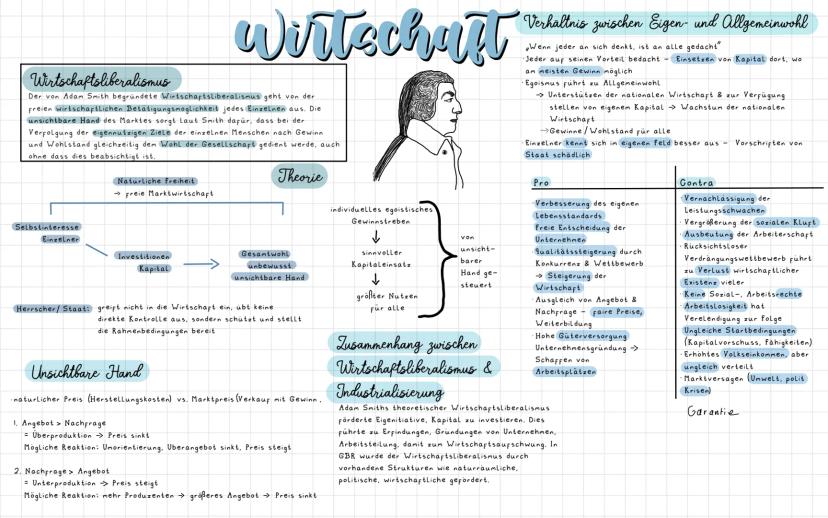 Wirtschaft
Wirtschaftsliberalismus
Der von Adam Smith begründete Wirtschaftsliberalismus geht von der
freien wirtschaftlichen Betätigungsmöglichkeit jedes Einzelnen aus. Die
unsichtbare Hand des Marktes sorgt laut Smith dafür, dass bei der
Verfolgung der eigennützigen Ziele der einzelnen Menschen nach Gewinn
und Wohlstand gleichzeitig dem Wohl der Gesellschaft gedient werde, auch
ohne dass dies beabsichtigt ist.
Theorie
Natürliche Freiheit
→ freie Marktwirtschaft
Selbstinteresse
Einzelner
Investitionen
Kapital
Gesamtwohl
unbewusst
unsichtbare Hand
Herrscher/ Staat:
greift nicht in die Wirtschaft ein, übt keine
direkte Kontrolle aus, sondern schützt und stellt
die Rahmenbedingungen bereit
individuelles egoistisches
Gewinnstreben
↓
sinnvoller
Kapitaleinsatz
↓
größter Nutzen
für alle
von
unsicht-
barer
Hand ge-
steuert
Unsichtbare Hand
·natürlicher Preis (Herstellungskosten) vs. Marktpreis(Verkauf mit Gewinn,
1. Angebot > Nachfrage
= Überproduktion → Preis sinkt
Mögliche Reaktion: Umorientierung, Überangebot sinkt, Preis steigt
2. Nachfrage > Angebot
= Unterproduktion → Preis steigt
Mögliche Reaktion: mehr Produzenten → größeres Angebot → Preis sinkt
Zusammenhang zwischen
Wirtschaftsliberalismus &
Industrialisierung
Adam Smiths theoretischer Wirtschaftsliberalismus
förderte Eigenitiative, Kapital zu investieren. Dies
führte zu Erfindungen, Gründungen von Unternehmen,
Arbeitsteilung, damit zum Wirtschaftsaufschwung. In
GBR wurde der Wirtschaftsliberalismus durch
vorhandene Strukturen wie naturräumliche,
politische, wirtschaftliche gefördert.
Verhältnis zwischen Eigen- und Allgemeinwohl
„Wenn jeder an sich denkt, ist an alle gedacht"
·Jeder auf seinen Vorteil bedacht – Einsetzen von Kapital dort, wo
am meisten Gewinn möglich
·Egoismus führt zu Allgemeinwohl
→ Unterstützen der nationalen Wirtschaft & zur Verfügung
stellen von eigenem Kapital → Wachstum der nationalen
Wirtschaft
→Gewinne / Wohlstand für alle
·Einzelner kennt sich in eigenem Feld besser aus – Vorschriften von
Staat schädlich
Pro
·Verbesserung des eigenen
Lebensstandards
·Freie Entscheidung der
Unternehmen
·Qualitätssteigerung durch
Konkurrenz & Wettbewerb
→ Steigerung der
Wirtschaft
·Ausgleich von Angebot &
Nachfrage – faire Preise,
Weiterbildung
·Hohe Güterversorgung
·Unternehmensgründung →
Schaffen von
Arbeitsplätzen
Contra
·Vernachlässigung der
Leistungsschwachen
·Vergrößerung der sozialen Kluft
·Ausbeutung der Arbeiterschaft
·Rücksichtsloser
Verdrängungswettbewerb führt
zu Verlust wirtschaftlicher
Existenz vieler
·Keine Sozial-, Arbeitsrechte
·Arbeitslosigkeit hat
Verelendigung zur Folge
·Ungleiche Startbedingungen
(Kapitalvorschuss, Fähigkeiten)
·Erhöhtes Volkseinkommen, aber
ungleich verteilt
·Marktversagen (Umwelt, polit
Krisen)
Garantie